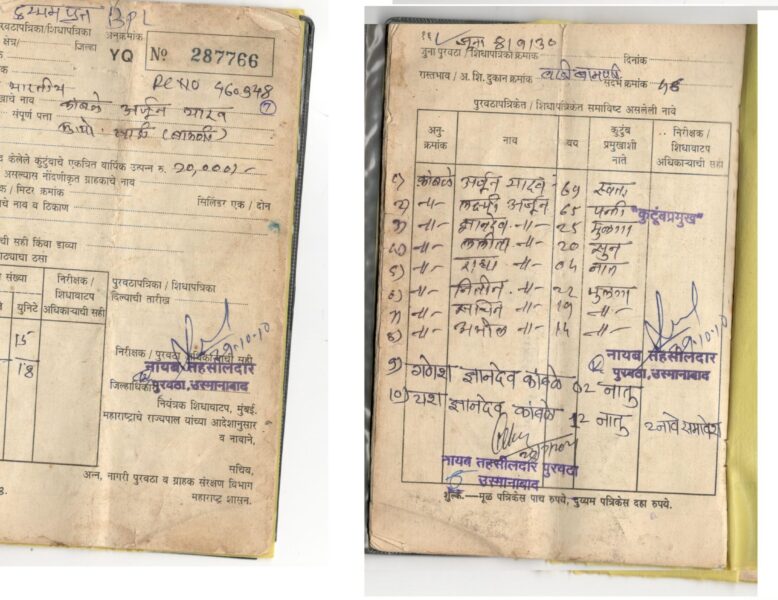 दुय्यम प्रत BPL
पुरवठापत्रिका / शिधापत्रिका अनुक्रमांक
क्षेत्र/ जिल्हा
YQ Nº 287766
RC NO 460348
भारतीय
खाचे नाव कांबळे अर्जून यादव
7
संपूर्ण पत्ता
द केलेले कुटुंबाचे एकत्रित वार्षिक उत्पन्न रु. 20,000/-
असल्यास नोंदणीकृत ग्राहकाचे नाव
क / मिटर क्रमांक
सिलिंडर एक / दोन
चे नाव व ठिकाण
ची सही किंवा डाव्या
ठ्याचा ठसा
संख्या
युनिटे
निरीक्षक / शिधावाटप अधिकाऱ्याची सही
पुरवठापत्रिका / शिधापत्रिका
दिल्याची तारीख
15
18
29-10-10
निरीक्षक / पुरवठा अधिकाऱ्याची सही
नायब तहसीलदार
पुरवठा,उस्मानाबाद
जिल्हाधिकारी
नियंत्रक शिधावाटप, मुंबई.
महाराष्ट्राचे राज्यपाल यांच्या आदेशानुसार
व नावाने,
सचिव,
अन्न, नागरी पुरवठा व ग्राहक संरक्षण विभाग
महाराष्ट्र शासन.
3.
जुना 819130
जुना पुरवठा / शिधापत्रिका क्रमांक
दिनांक
रास्तभाव / अ. शि. दुकान क्रमांक
संदर्भ क्रमांक 46
पुरवठापत्रिकेत / शिधापत्रिकेत समाविष्ट असलेली नावे
अनुक्रमांक नाव वय कुटुंब प्रमुखाशी नाते निरीक्षक / शिधावाटप अधिकाऱ्याची सही
१) कांबळे अर्जून यादव - 69 स्वतः
२) -॥- अर्जून 65 पत्नी
"कुटूंबप्रमुख"
३) -॥- ज्ञानदेव -॥- 25 मुलगा
४) -॥- ललीता -॥- 20 सुन
५) -॥- राधा -॥- 04 नात
६) -॥- नितीन -॥- 22 मुलगा
७) -॥- सचिन -॥- 19 -॥-
८) -॥- अमोल -॥- 14 -॥-
29-10-10
नायब तहसीलदार
पुरवठा,उस्मानाबाद
९) गणेश ज्ञानदेव कांबळे 02 नातु
१०) यश ज्ञानदेव कांबळे 12 नातु 2 नावे समावेश
नायब तहसीलदार पुरवठा
उस्मानाबाद
शुल्क.—मूळ पत्रिकेस पाच रुपये, दुय्यम पत्रिकेस दहा रुपये.